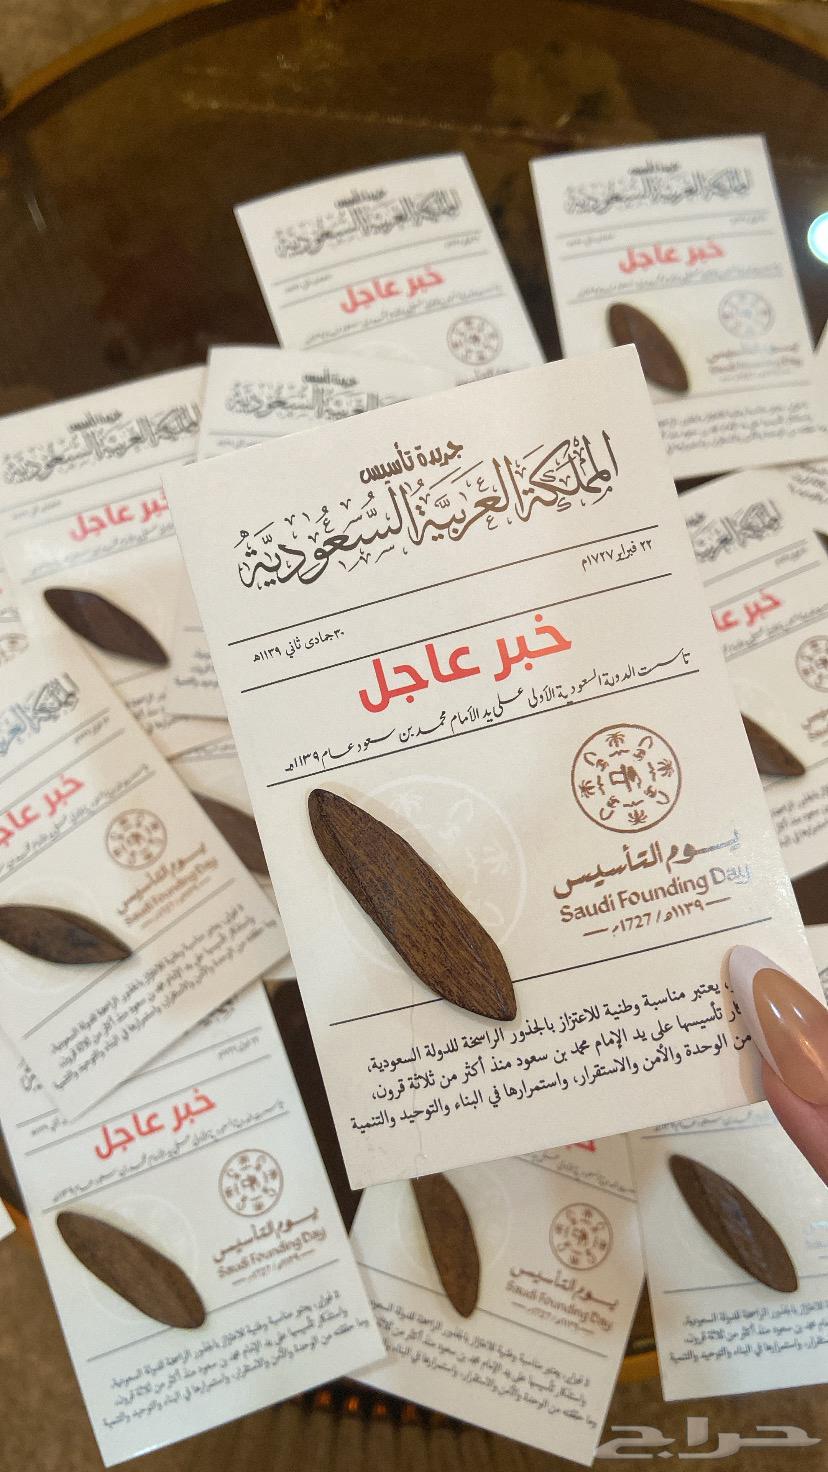 جريدة تأسيس
المملكة العربية السعودية
٢٢ فبراير ١٧٢٧م
٣٠ جمادى ثاني ١١٣٩هـ
خبر عاجل
تأسست الدولة السعودية الأولى على يد الأمام محمد بن سعود عام ١١٣٩هـ
يوم التأسيس
Saudi Founding Day
١١٣٩هـ / 1727م
يعتبر مناسبة وطنية للاعتزاز بالجذور الراسخة للدولة السعودية،
تأسيسها على يد الإمام محمد بن سعود منذ أكثر من ثلاثة قرون،
من الوحدة والأمن والاستقرار، واستمرارها في البناء والتوحيد والتنمية
حراج